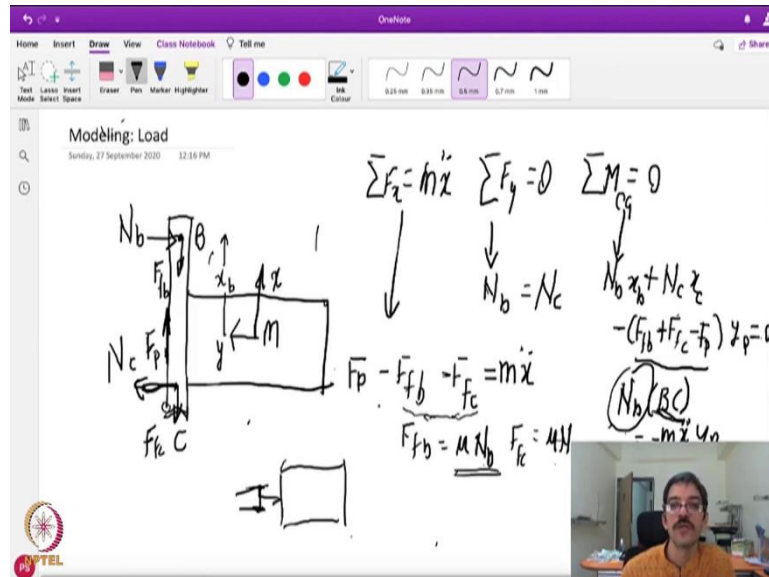 OneNote
Home Insert Draw View Class Notebook Tell me Share
Text Mode Lasso Select Insert Space Eraser Pen Marker Highlighter Ink Colour 0.25 mm 0.35 mm 0.5 mm 0.7 mm 1 mm
Modeling: Load
Sunday, 27 September 2020 12:16 PM
ΣF_x = mẍ ΣF_y = 0 ΣM_cg = 0
N_b B
F_fb x_b x
N_b = N_c N_b x_b + N_c x_c
y M
-(F_fb + F_fc - F_p) y_p = 0
N_c F_p
F_p - F_fb - F_fc = mẍ
N_b (BC)
F_fc C
F_fb = μN_b F_fc = μN
= -mẍ y_p
NPTEL
PS